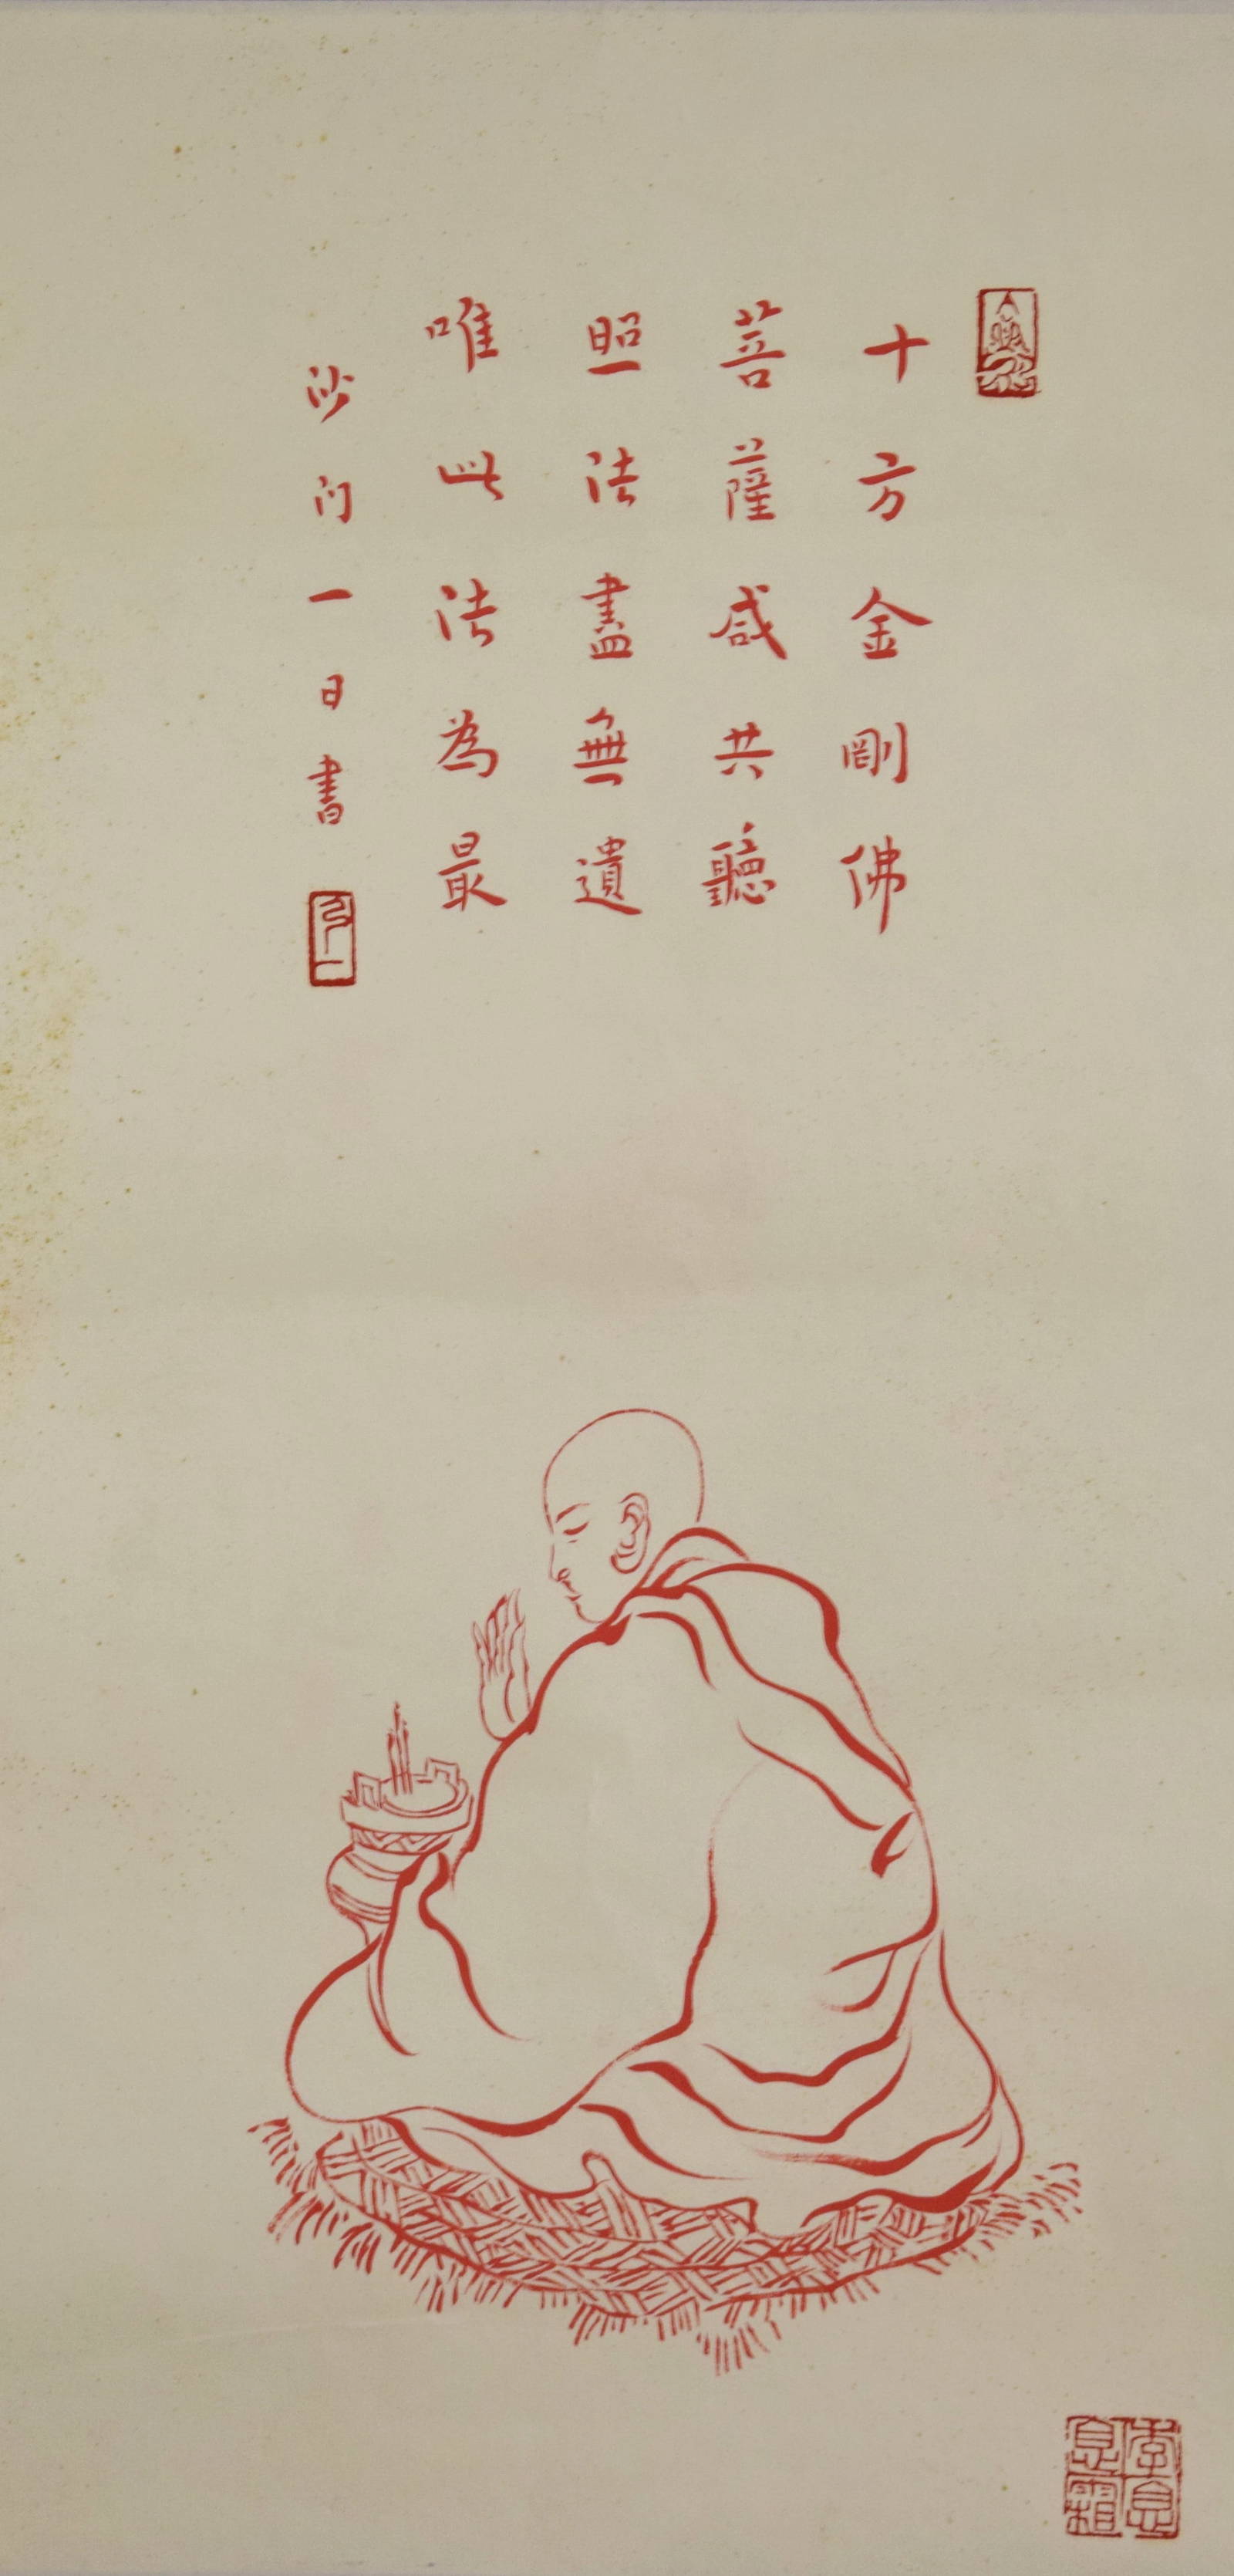 十方金剛佛
菩薩咸共聽
照法盡無遺
唯此法為最
沙门一日書
弘一
李息
息霜